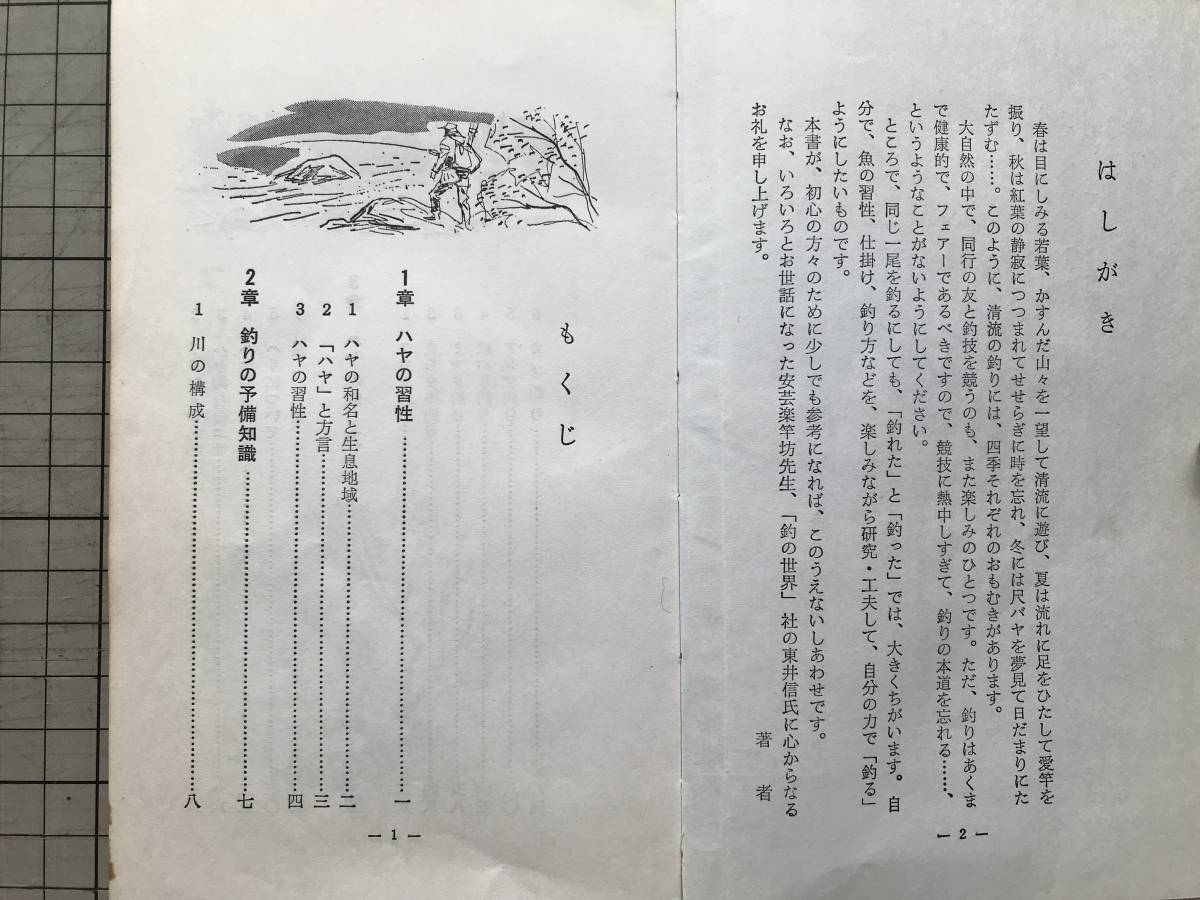 はしがき
春は目にしみる若葉、かすんだ山々を一望して清流に遊び、夏は流れに足をひたして愛竿を
振り、秋は紅葉の静寂につつまれてせせらぎに時を忘れ、冬には尺バヤを夢見て日だまりにた
たずむ……。このように、清流の釣りには、四季それぞれのおもむきがあります。
大自然の中で、同行の友と釣技を競うのも、また楽しみのひとつです。ただ、釣りはあくま
で健康的で、フェアーであるべきですので、競技に熱中しすぎて、釣りの本道を忘れる……、
というようなことがないようにしてください。
ところで、同じ一尾を釣るにしても、「釣れた」と「釣った」では、大きくちがいます。自
分で、魚の習性、仕掛け、釣り方などを、楽しみながら研究・工夫して、自分の力で「釣る」
ようにしたいものです。
本書が、初心の方々のために少しでも参考になれば、このうえないしあわせです。
なお、いろいろとお世話になった安芸楽竿坊先生、「釣の世界」社の東井信氏に心からなる
お礼を申し上げます。
著者
― 2 ―
もくじ
1章 ハヤの習性……一
1 ハヤの和名と生息地域……二
2 「ハヤ」と方言……三
3 ハヤの習性……四
2章 釣りの予備知識……七
1 川の構成……八
― 1 ―